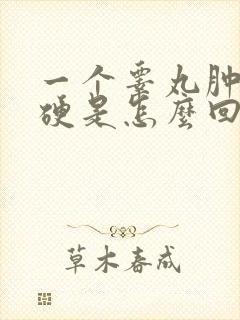 一个睾丸肿
硬是怎麼回
草木春成